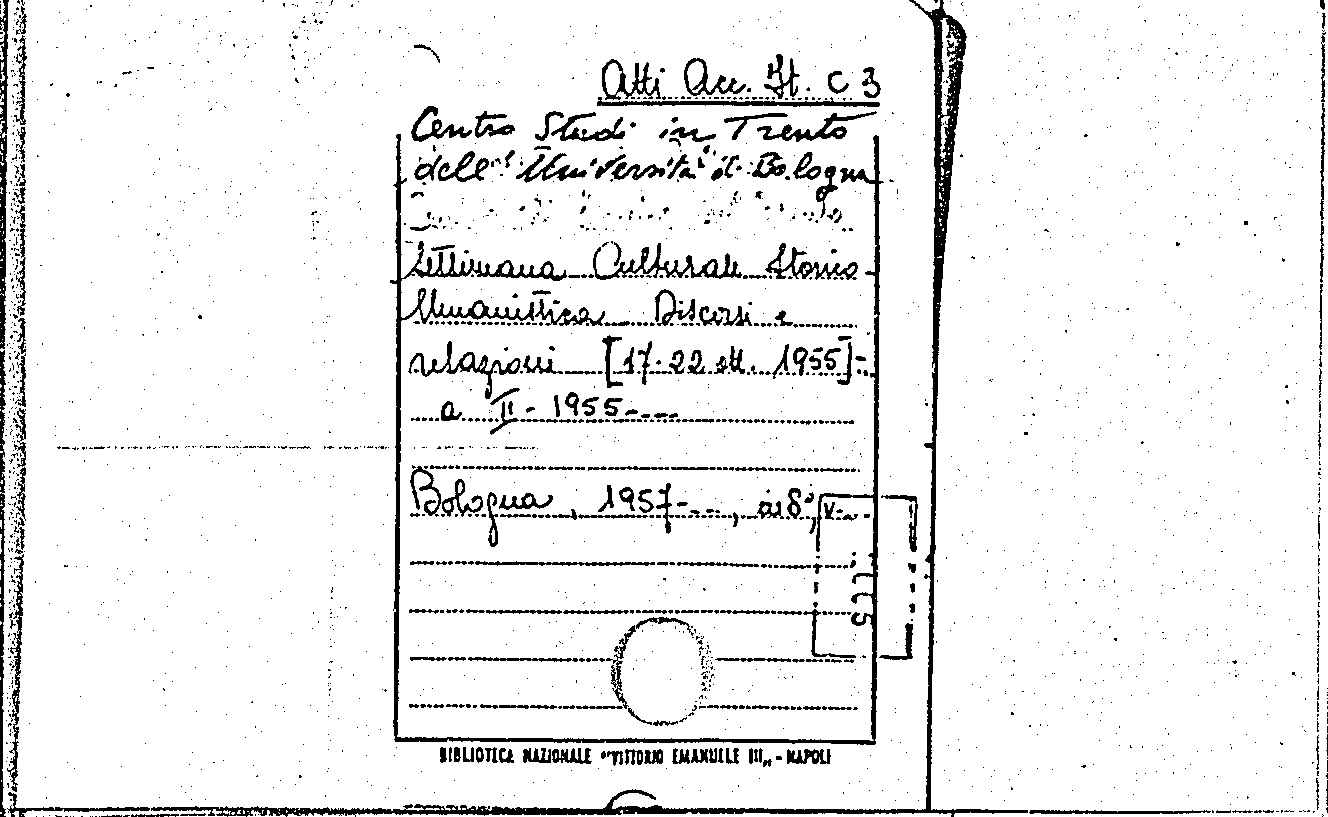 Atti Acc. It. C 3
Centro Studi in Trento
dell' Università di Bologna
Settimana Culturale Storico
Umanistica Discorsi e
relazioni [17-22 ott. 1955]-
a II - 1955----
Bologna, 1957---, in 8°, v---
BIBLIOTECA NAZIONALE "VITTORIO EMANUELE III„ - NAPOLI